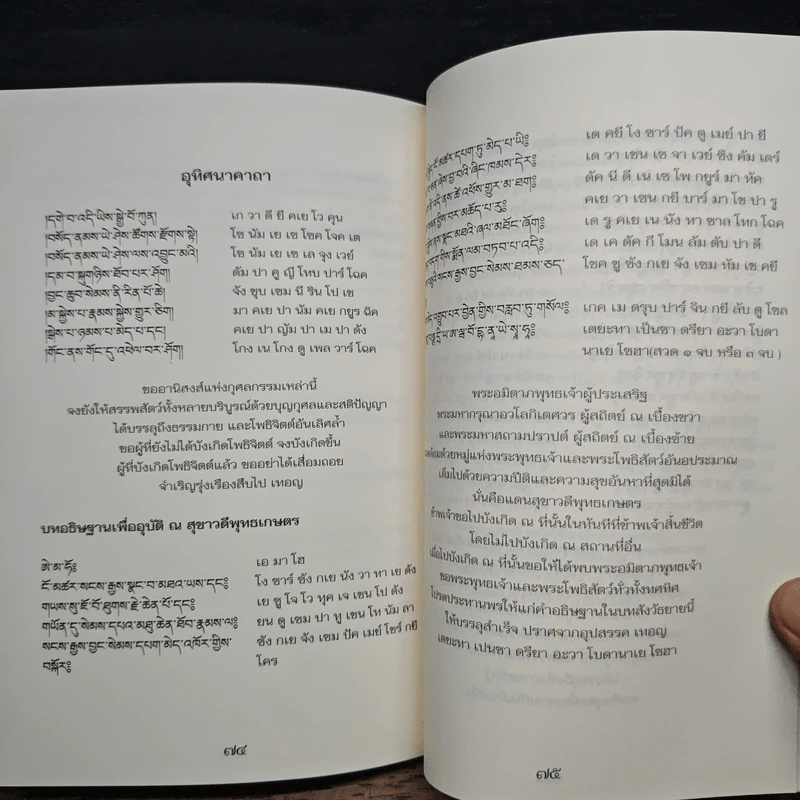 อุทิศนาคาถา
།དགེ་བ་འདི་ཡིས་སྐྱེ་བོ་ཀུན། เก วา ดี ยี คเย โว คุน
།བསོད་ནམས་ཡེ་ཤེས་ཚོགས་རྫོགས་སྟེ། โซ นัม เย เช โซค โจค เต
།བསོད་ནམས་ཡེ་ཤེས་ལས་འབྱུང་བའི། โซ นัม เย เช เล จุง เวย์
།དམ་པ་སྐུ་གཉིས་ཐོབ་པར་ཤོག། ตัม ปา คู ญี โทบ ปาร์ โฉค
།བྱང་ཆུབ་སེམས་ནི་རིན་པོ་ཆེ། จัง ชุบ เซม นี ริน โป เช
།མ་སྐྱེས་པ་རྣམས་སྐྱེས་གྱུར་ཅིག། มา คเย ปา นัม คเย กยูร ฉิค
།སྐྱེས་པ་ཉམས་པ་མེད་པ་དང། คเย ปา ญัม ปา เม ปา ดัง
།གོང་ནས་གོང་དུ་འཕེལ་བར་ཤོག། โกง เน โกง ดู เพล วาร์ โฉค
ขออานิสงส์แห่งกุศลกรรมเหล่านี้
จงยังให้สรรพสัตว์ทั้งหลายบริบูรณ์ด้วยบุญกุศลและสติปัญญา
ได้บรรลุถึงธรรมกาย และโพธิจิตต์อันเลิศล้ำ
ขอผู้ที่ยังไม่ได้บังเกิดโพธิจิตต์ จงบังเกิดขึ้น
ผู้ที่บังเกิดโพธิจิตต์แล้ว ขออย่าได้เสื่อมถอย
จำเริญรุ่งเรืองสืบไป เทอญ
บทอธิษฐานเพื่ออุบัติ ณ สุขาวดีพุทธเกษตร
ཨེ་མ་ཧོ༔ เอ มา โฮ
ངོ་མཚར་སངས་རྒྱས་སྣང་བ་མཐའ་ཡས་དང༔ โง ซาร์ ซัง กเย นัง วา ทา เย ดัง
གཡས་སུ་ཇོ་བོ་ཐུགས་རྗེ་ཆེན་པོ་དང༔ เย ซู โจ โว ทุค เจ เชน โป ดัง
གཡོན་དུ་སེམས་དཔའ་མཐུ་ཆེན་ཐོབ་རྣམས་ལ༔ ยน ดู เซม ปา ทู เชน โท นัม ลา
སངས་རྒྱས་བྱང་སེམས་དཔག་མེད་འཁོར་གྱིས་ ซัง กเย จัง เซม ปัค เมย์ โขร์ กยี
བསྐོར༔ โคร
๗๔
ངོ་མཚར་དཔག་ཏུ་མེད་པ་ཡི༔ เด คยี โง ซาร์ ปัค ตู เมย์ ปา ยี
ཞེས་བྱ་བའི་ཞིང་ཁམས་དེར༔ เด วา เชน เช จา เวย์ ซึง คัม เดร์
འདི་ནས་ཚེ་འཕོས་གྱུར་མ་ཐག༔ ดัค นี ดี เน เซ โพ กยูร์ มา ทัค
གྱིས་བར་མ་ཆོད་པ་རུ༔ คเย วา เชน กยี บาร์ มา โช ปา รู
ནས་སྣང་མཐའི་ཞལ་མཐོང་ཤོག༔ เด รู คเย เน นัง ทา ชาล โทก โฉค
གིས་སྨོན་ལམ་བཏབ་པ་འདི༔ เด เค ดัค กี โมน ลัม ตับ ปา ดี
སངས་རྒྱས་བྱང་སེམས་ཐམས་ཅད་ โชค ซู ซัง กเย จัง เซม ทัม เช คยี
འགྲུབ་པར་བྱིན་གྱིས་བརླབ་ཏུ་གསོལ༔ เกค เม ดรุบ ปาร์ จิน กยี ลับ ตู โซล
เตยะทา เป็นซา ดรียา อะวา โบดา
นาเย โซฮา(สวด ๑ จบ หรือ ๓ จบ)
พระอมิตาภพุทธเจ้าผู้ประเสริฐ
พระมหากรุณาอวโลกิเตศวร ผู้สถิตย์ ณ เบื้องขวา
และพระมหาสถามปราปต์ ผู้สถิตย์ ณ เบื้องซ้าย
ด้วยหมู่แห่งพระพุทธเจ้าและพระโพธิสัตว์อันอประมาณ
เต็มไปด้วยความปีติและความสุขอันหาที่สุดมิได้
นั่นคือแดนสุขาวดีพุทธเกษตร
ข้าพเจ้าขอไปบังเกิด ณ ที่นั้นในทันทีที่ข้าพเจ้าสิ้นชีวิต
โดยไม่ไปบังเกิด ณ สถานที่อื่น
เมื่อไปบังเกิด ณ ที่นั้นขอให้ได้พบพระอมิตาภพุทธเจ้า
ขอพระพุทธเจ้าและพระโพธิสัตว์ทั่วทั้งทศทิศ
โปรดประทานพรให้แก่คำอธิษฐานในบทสังวัธยายนี้
ให้บรรลุสำเร็จ ปราศจากอุปสรรค เทอญ
เตยะทา เปนซา ดรียา อะวา โบดานาเย โซฮา
๗๕